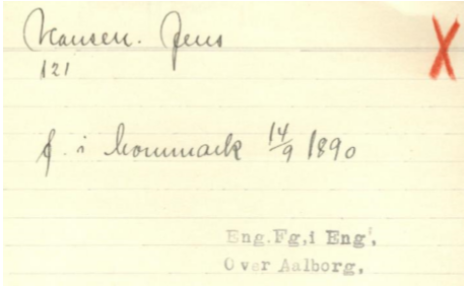 Hansen. Jens
121
f. i Kommark 14/9 1890
Eng.Fg.i Eng.
Over Aalborg.
X